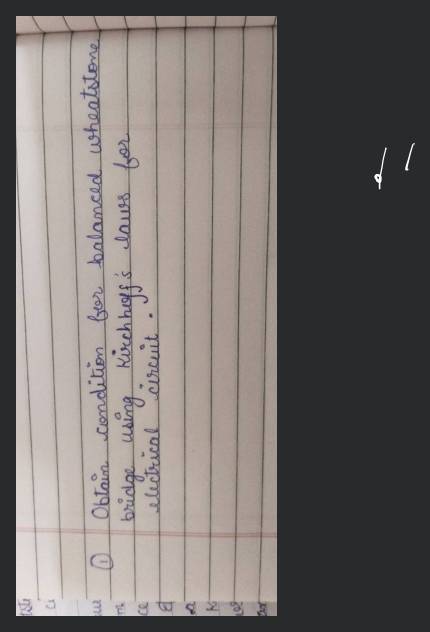 ① Obtain condition for balanced wheatstone
bridge using Kirchhoff's laws for
electrical circuit.